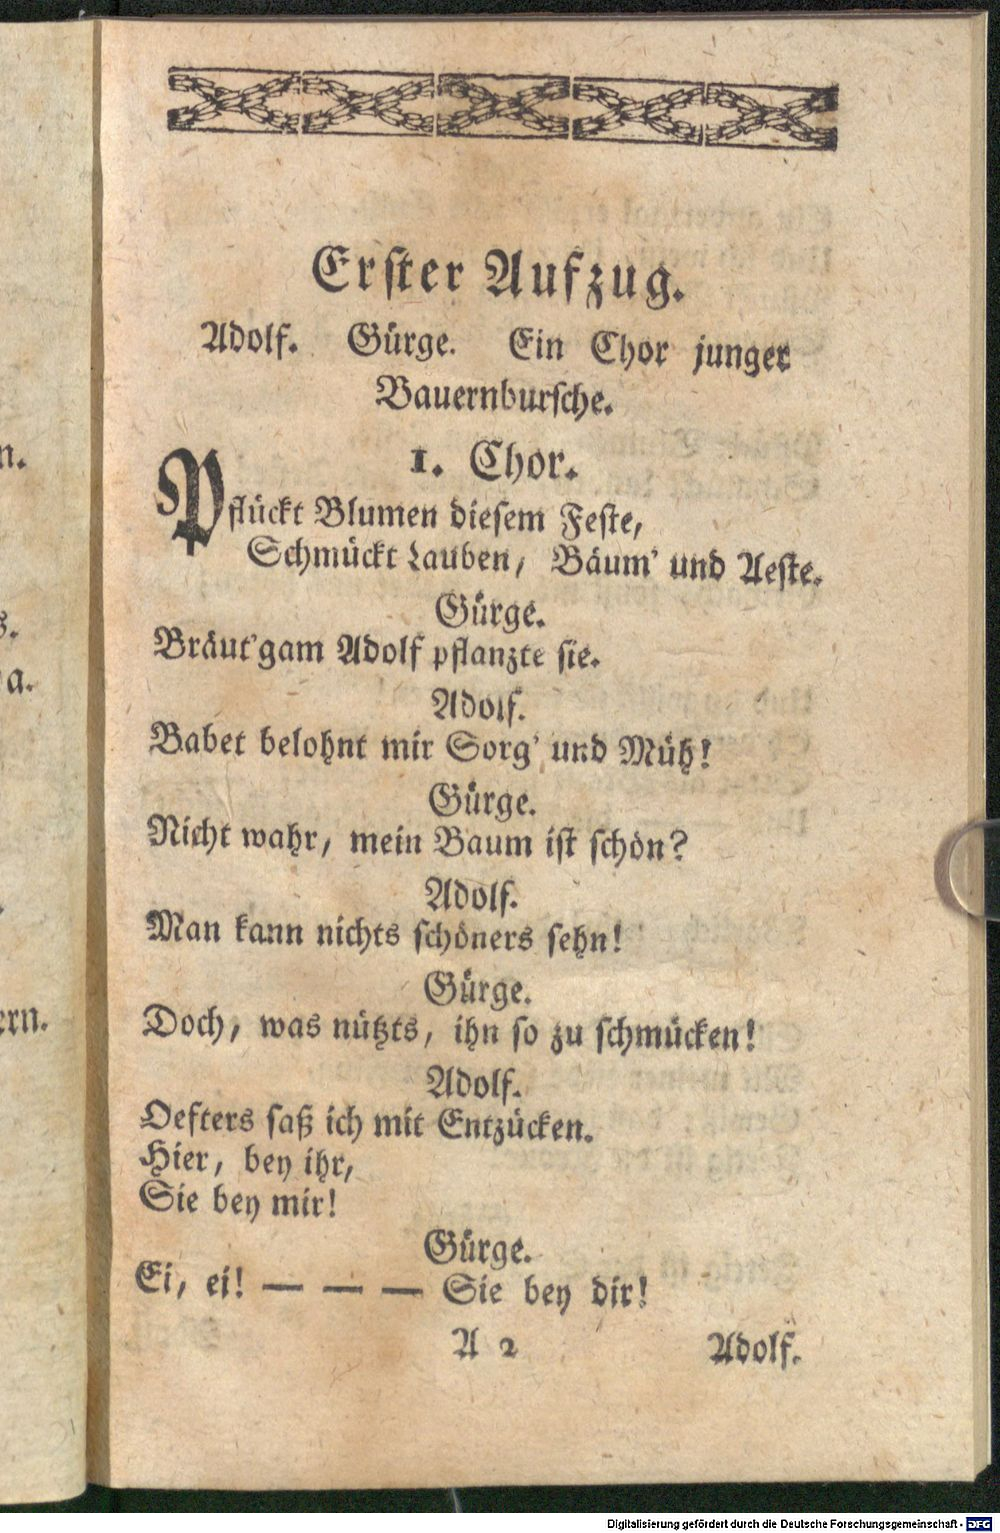 Erster Aufzug.
Adolf. Gürge. Ein Chor junger
Bauernbursche.
1. Chor.
Pflückt Blumen diesem Feste,
Schmückt Lauben, Bäum' und Aeste.
Gürge.
Bräut'gam Adolf pflanzte sie.
Adolf.
Babet belohnt mir Sorg' und Müh!
Gürge.
Nicht wahr, mein Baum ist schön?
Adolf.
Man kann nichts schöners sehn!
Gürge.
Doch, was nützts, ihn so zu schmücken!
Adolf.
Oefters saß ich mit Entzücken.
Hier, bey ihr,
Sie bey mir!
Gürge.
Ei, ei! — — — Sie bey dir!
A 2 Adolf.
Digitalisierung gefördert durch die Deutsche Forschungsgemeinschaft - DFG